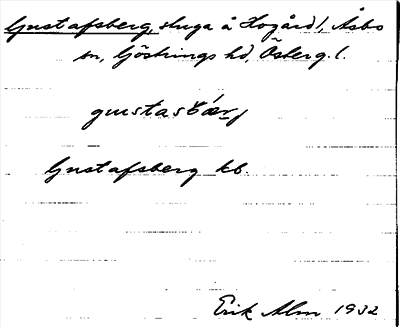 Gustafsberg, stuga å Hogård!, Åsbo
sn, Göstrings hd, Östergl.
gustasbærj
Gustafsberg kb.
Erik Alm 1932